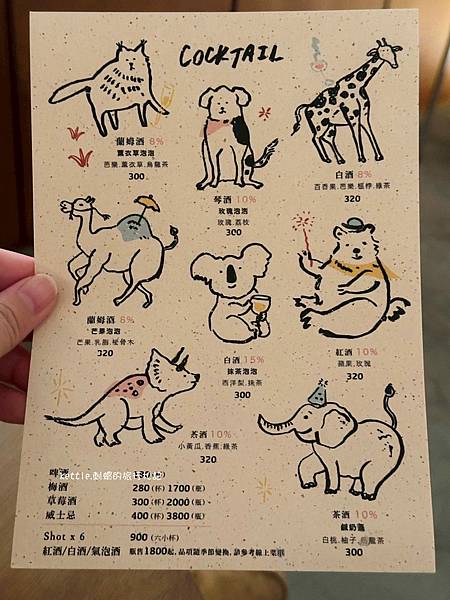 COCKTAIL
蘭姆酒 8%
薰衣草泡泡
芭樂,薰衣草,烏龍茶
300
琴酒 10%
玫瑰泡泡
玫瑰,荔枝
300
白酒 8%
百香果,芭樂,檸檬,綠茶
320
蘭姆酒 8%
芒果泡泡
芒果,乳脂,接骨木
320
白酒 15%
抹茶泡泡
西洋梨,抹茶
300
紅酒 10%
蘋果,玫瑰
320
茶酒 10%
小黃瓜,香蕉,綠茶
320
茶酒 10%
鹹奶蓋
白桃,柚子,烏龍茶
300
啤酒
kettle.刺蝟的旅行札記
梅酒 280(杯) 1700(瓶)
草莓酒 300(杯) 2000(瓶)
威士忌 400(杯) 3800(瓶)
Shot x 6 900(六小杯)
紅酒/白酒/氣泡酒 瓶售1800起,品項隨季節變換,請參考線上菜單